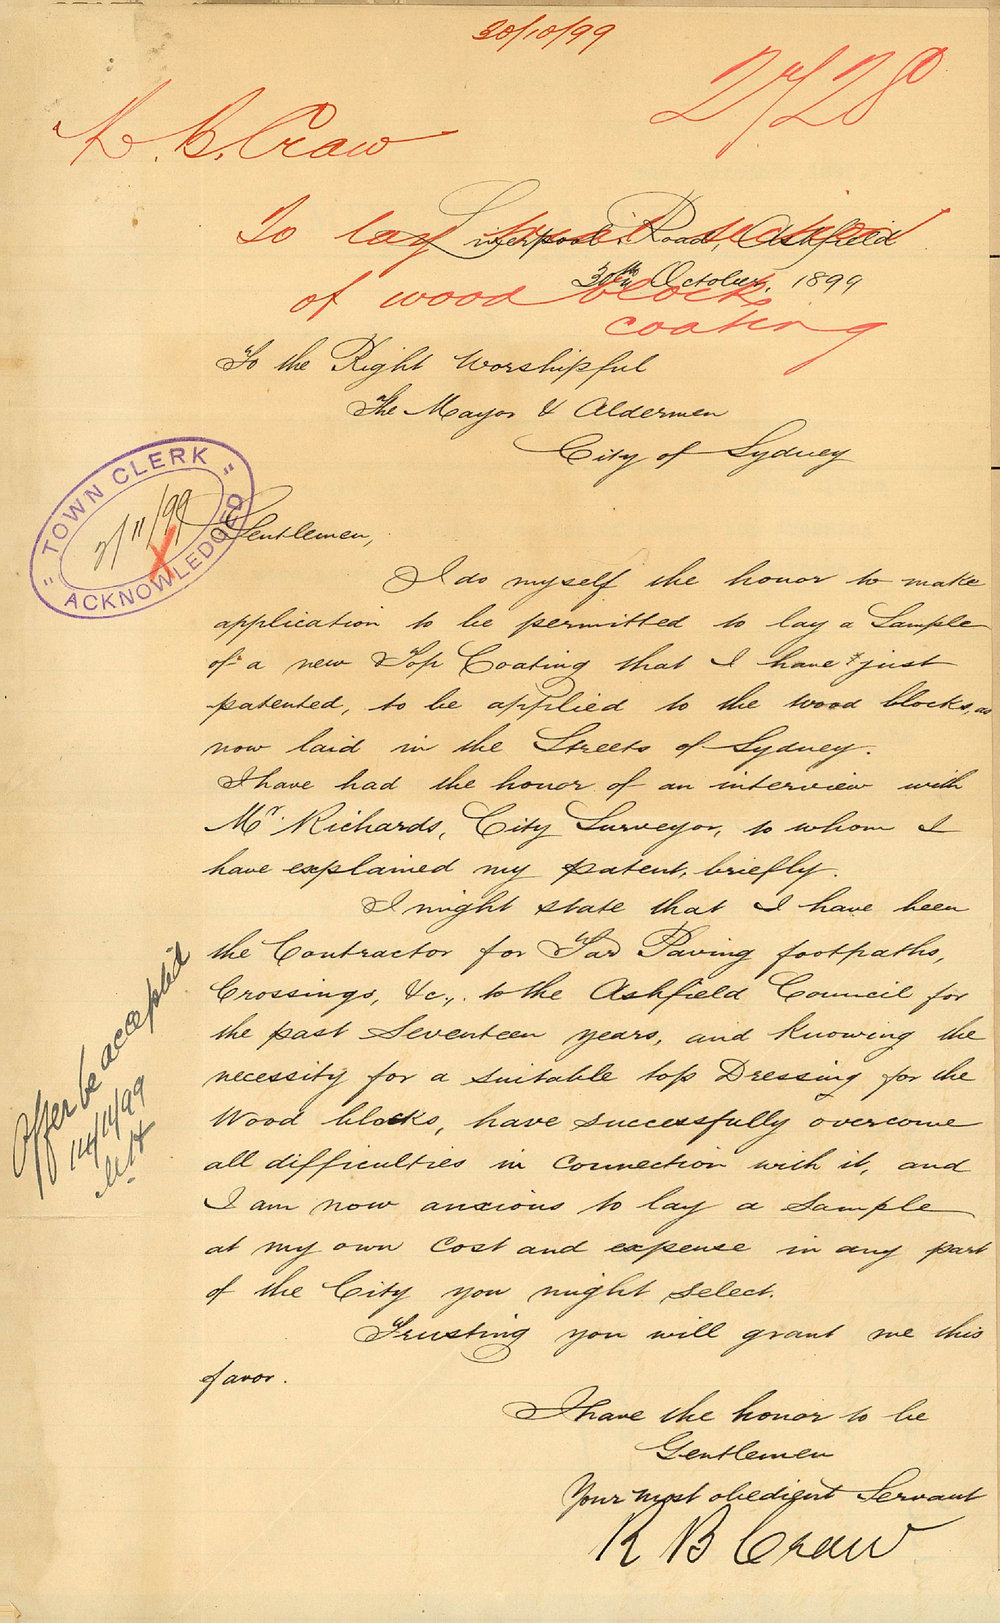 30/10/99
2728
R. B. Craw
To lay
of wood block
coating
Liverpool Road, Ashfield
30th October, 1899
To the Right Worshipful
The Mayor & Aldermen
City of Sydney
"TOWN CLERK"
2/11/99
X
ACKNOWLEDGED
Gentlemen,
I do myself the honor to make
application to be permitted to lay a Sample
of a new Top Coating that I have just
patented, to be applied to the wood blocks, as
now laid in the Streets of Sydney.
I have had the honor of an interview with
Mr. Richards, City Surveyor, to whom I
have explained my patent, briefly.
I might state that I have been
the Contractor for Tar Paving footpaths,
Crossings, &c., to the Ashfield Council for
the past Seventeen years, and knowing the
necessity for a suitable top Dressing for the
Wood blocks, have successfully overcome
all difficulties in connection with it, and
I am now anxious to lay a Sample
at my own Cost and expense in any part
of the City you might select.
Trusting you will grant me this
favor.
Offer be accepted
14/11/99
I have the honor to be
Gentlemen
Your most obedient Servant
R B Craw